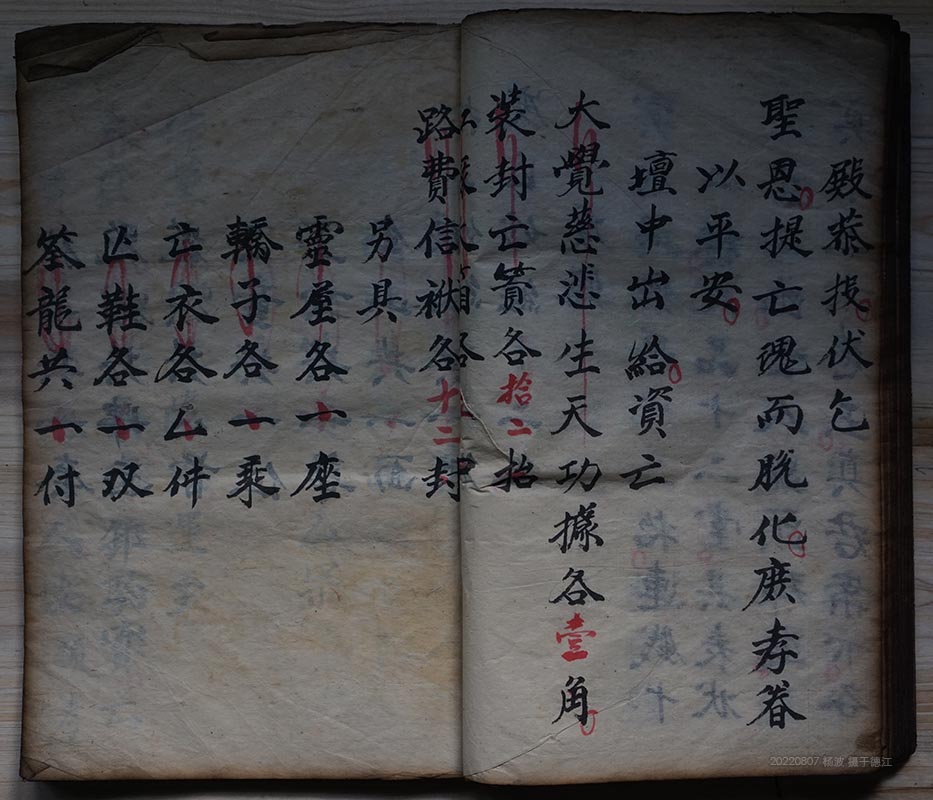 殿恭投伏乞
聖恩提亡魂而脫化庶孝眷
以平安
壇中出給資亡
大覺慈悲生天功據各壹角
裝封亡簣各拾二抬
路費信袱各十二封
另具
靈屋各十座
轎子各十乘
亡衣各厶件
亾鞋各十双
筌龍共十付
20220807 杨波 摄于德江